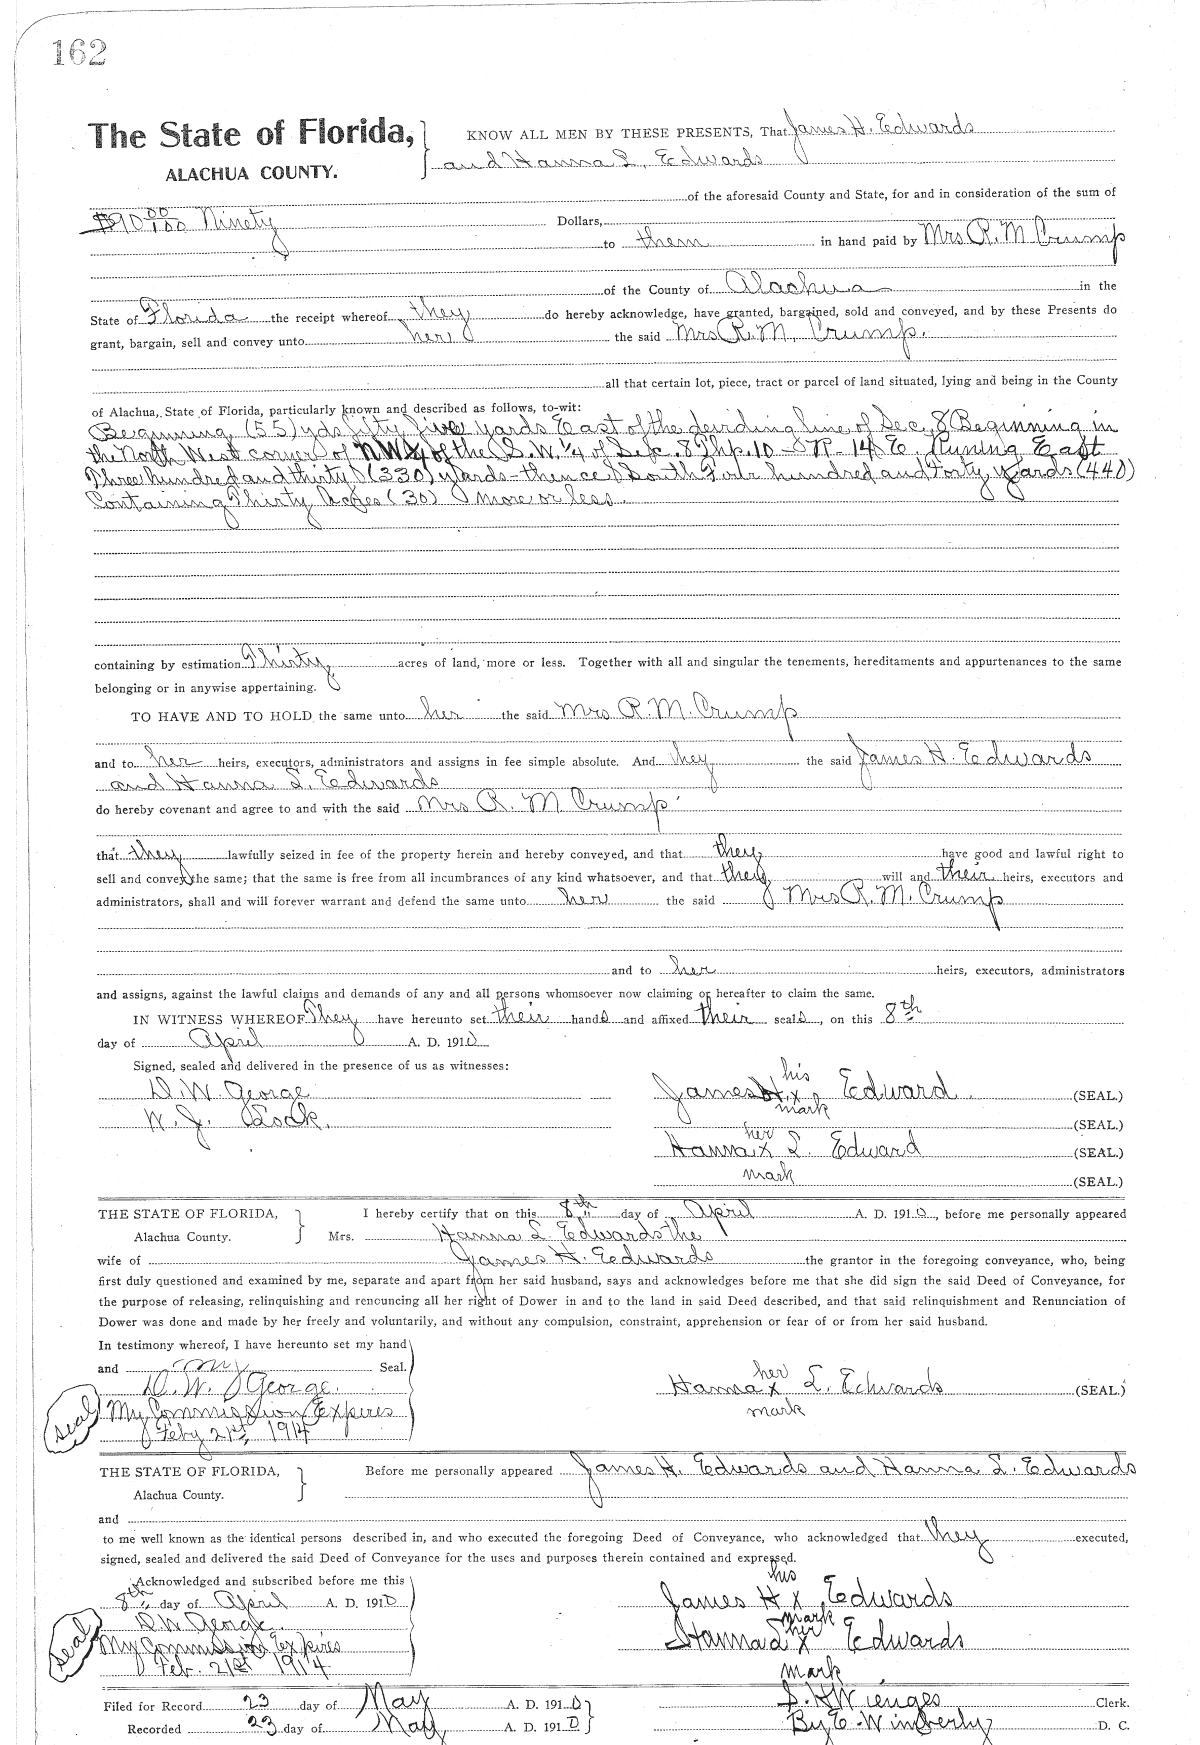 162
The State of Florida, KNOW ALL MEN BY THESE PRESENTS, That James H. Edwards
ALACHUA COUNTY. and Hanna L. Edwards
of the aforesaid County and State, for and in consideration of the sum of
$90 00/100 Ninety Dollars,
to them in hand paid by Mrs R. M Crump
of the County of Alachua in the
State of Florida the receipt whereof they do hereby acknowledge, have granted, bargained, sold and conveyed, and by these Presents do
grant, bargain, sell and convey unto her the said Mrs R. M. Crump.
all that certain lot, piece, tract or parcel of land situated, lying and being in the County
of Alachua, State of Florida, particularly known and described as follows, to-wit:
Beginning (55) yds fifty five yards East of the deviding line of Sec. 8 Beginning in
the North West corner of NW¼ of the S.W. ¼ of Sec. 8 Thp. 10 S R. 14 E. Runing East
Three hundred and thirty (330) yards - thence South Four hundred and Forty yards (440)
Containing Thirty Acres (30) more or less.
containing by estimation Thirty acres of land, more or less. Together with all and singular the tenements, hereditaments and appurtenances to the same
belonging or in anywise appertaining.
TO HAVE AND TO HOLD the same unto her the said Mrs R. M. Crump
and to her heirs, executors, administrators and assigns in fee simple absolute. And they the said James H. Edwards
and Hanna L. Edwards
do hereby covenant and agree to and with the said Mrs R. M Crump
that they lawfully seized in fee of the property herein and hereby conveyed, and that they have good and lawful right to
sell and convey the same; that the same is free from all incumbrances of any kind whatsoever, and that they will and their heirs, executors and
administrators, shall and will forever warrant and defend the same unto her the said Mrs R. M. Crump
and to her heirs, executors, administrators
and assigns, against the lawful claims and demands of any and all persons whomsoever now claiming or hereafter to claim the same.
IN WITNESS WHEREOF They have hereunto set their hands and affixed their seals, on this 8th
day of April A. D. 1910
Signed, sealed and delivered in the presence of us as witnesses:
his
D. W. George James H. x Edward (SEAL.)
mark
W. J. (SEAL.)
her
Hanna x L. Edward (SEAL.)
mark (SEAL.)
THE STATE OF FLORIDA, I hereby certify that on this 8th day of April A. D. 1910, before me personally appeared
Alachua County. Mrs. Hanna L. Edwards the
wife of James H. Edwards the grantor in the foregoing conveyance, who, being
first duly questioned and examined by me, separate and apart from her said husband, says and acknowledges before me that she did sign the said Deed of Conveyance, for
the purpose of releasing, relinquishing and renouncing all her right of Dower in and to the land in said Deed described, and that said relinquishment and Renunciation of
Dower was done and made by her freely and voluntarily, and without any compulsion, constraint, apprehension or fear of or from her said husband.
In testimony whereof, I have hereunto set my hand
and my Seal.
her
D. W. George. Hanna x L. Edwards (SEAL.)
mark
seal My Commission Expires
Feby 21st, 1914
THE STATE OF FLORIDA, Before me personally appeared James H. Edwards and Hanna L. Edwards
Alachua County.
and
to me well known as the identical persons described in, and who executed the foregoing Deed of Conveyance, who acknowledged that they executed,
signed, sealed and delivered the said Deed of Conveyance for the uses and purposes therein contained and expressed.
Acknowledged and subscribed before me this
his
8th day of April A. D. 1910 James H x Edwards
mark
D. W. George. her
seal My Commission Expires Hanna L x Edwards
Feb. 21st 1914 mark
Filed for Record 23 day of May A. D. 1910 S. H Wienges Clerk.
Recorded 23 day of May A. D. 1910 By E. Wimberly D. C.